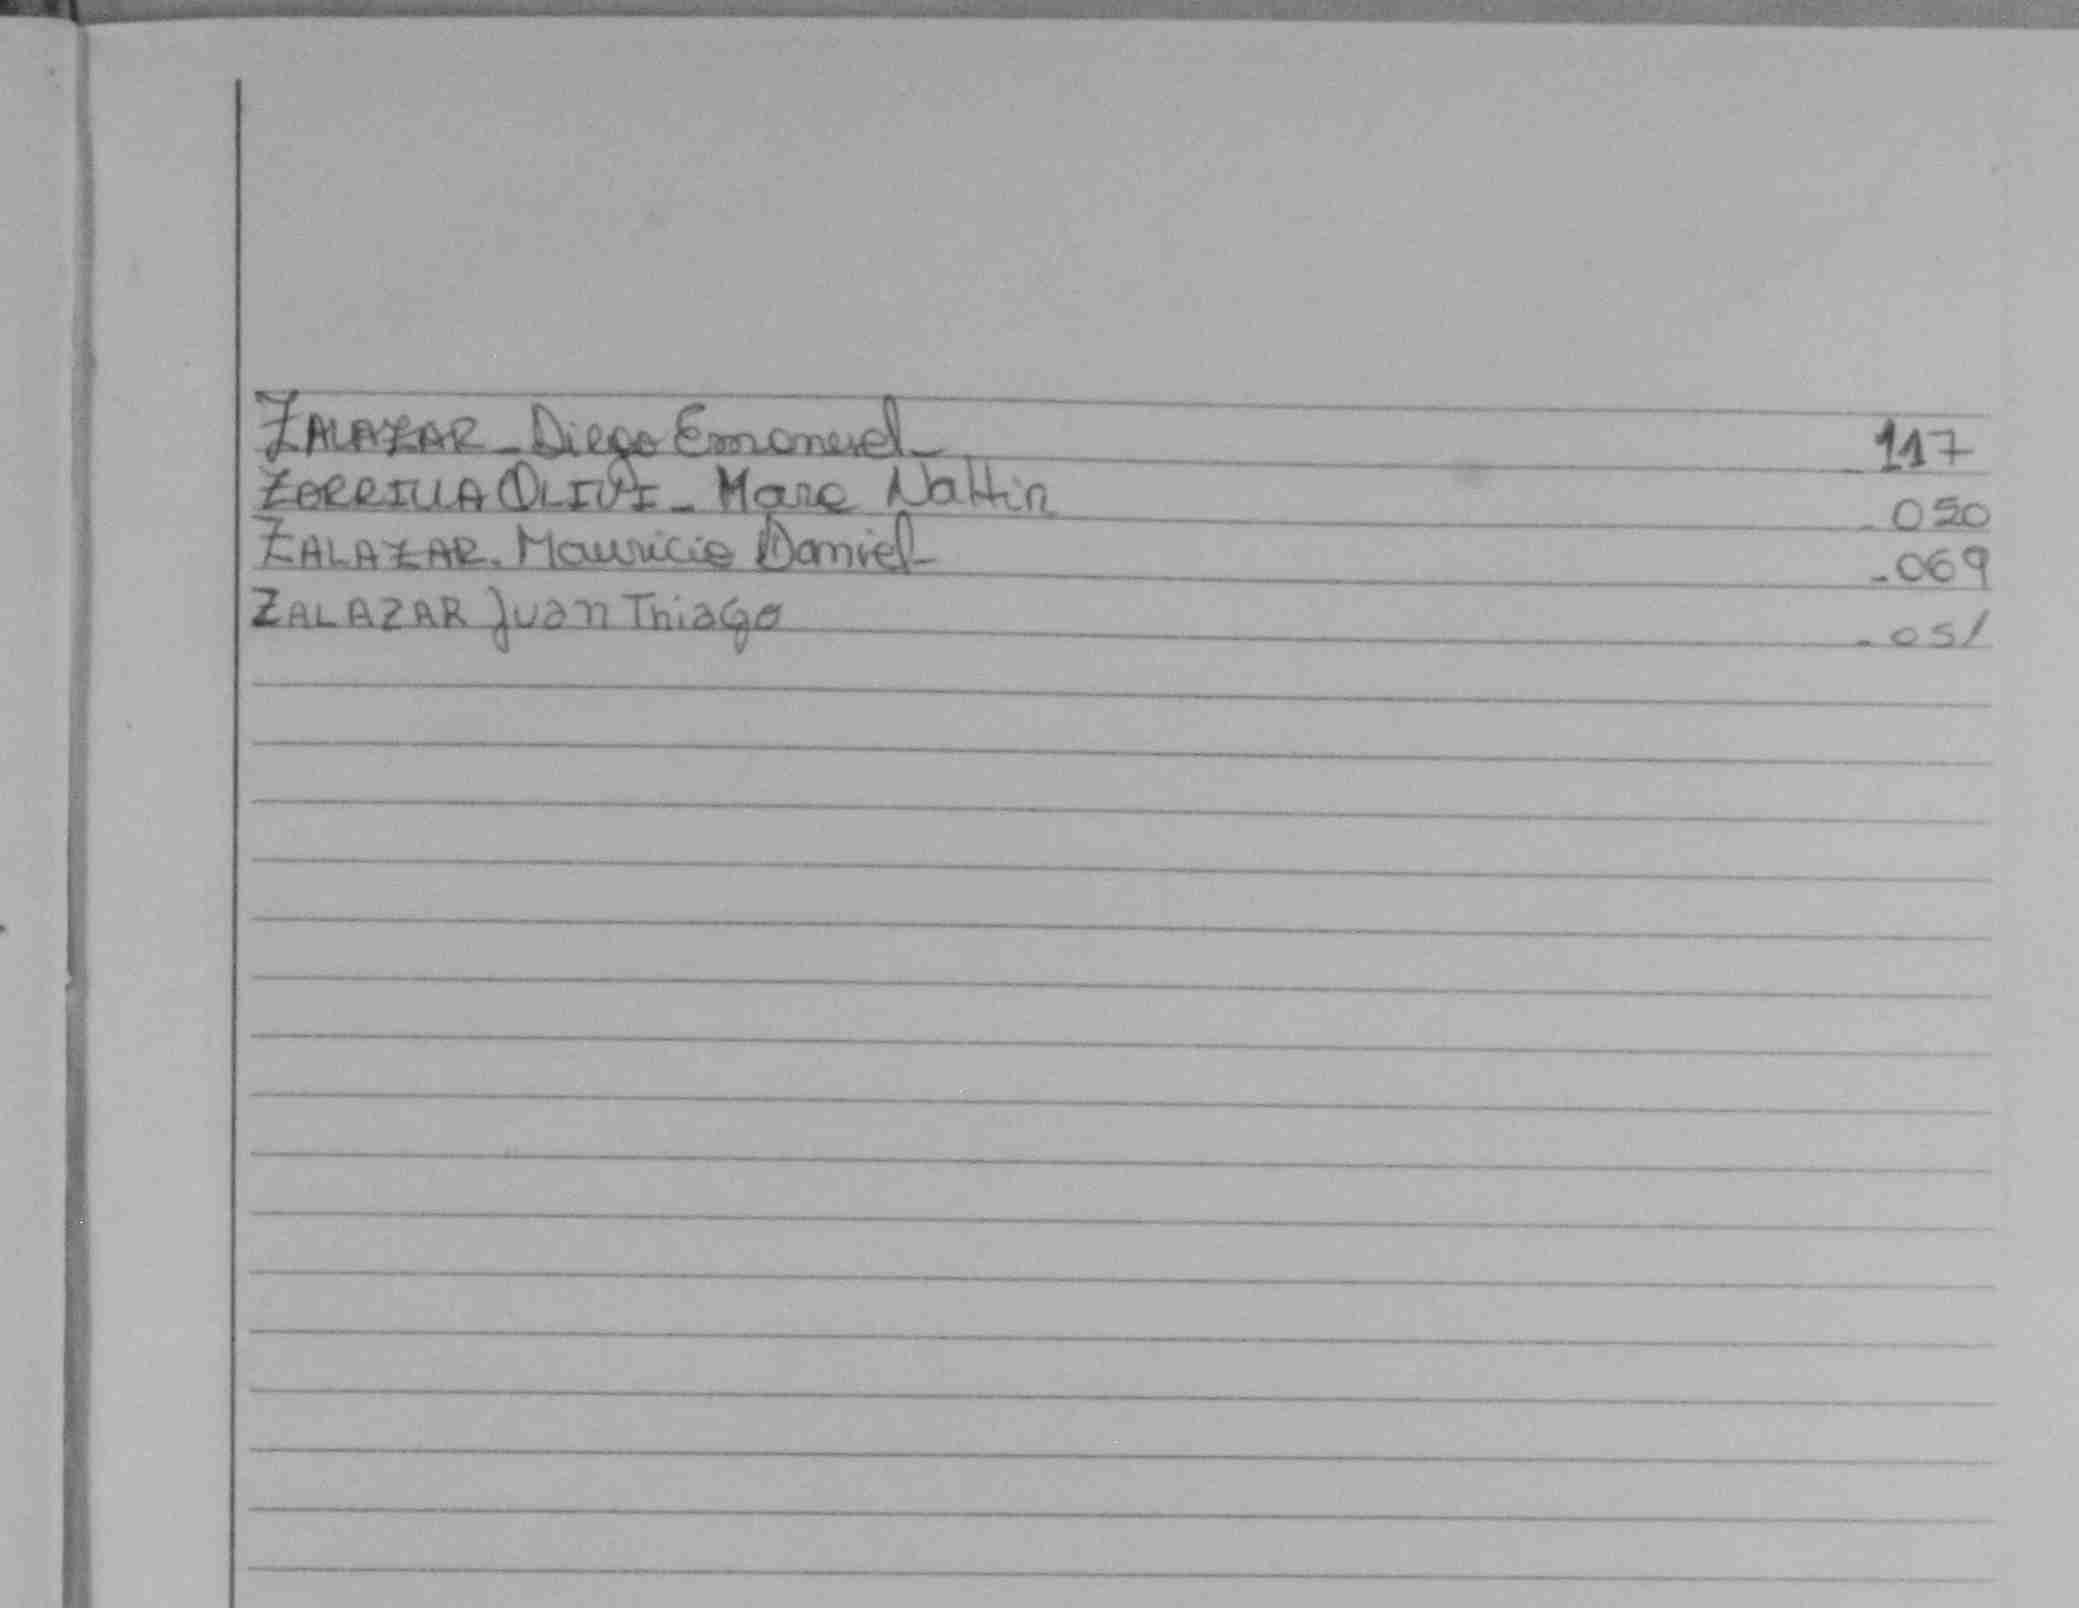 ZALAZAR - Diego Emanuel - 117
ZORRILLA OLIVI - Marc Nattin - 050
ZALAZAR - Mauricio Daniel - - 069
ZALAZAR Juan Thiago - 051